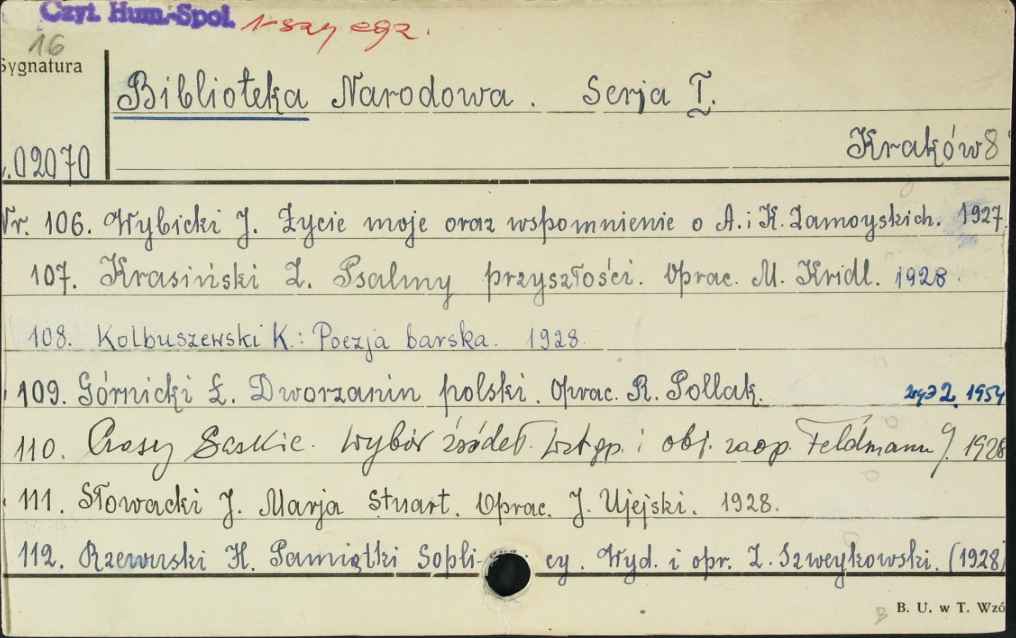 Czyt. Hum.-Spol. 1-szy egz.
16
Sygnatura
Biblioteka Narodowa. Serja I.
02070
Kraków 8
Nr. 106. Wybicki J. Życie moje oraz wspomnienie o A. i K. Zamoyskich. 1927.
107. Krasiński Z. Psalmy przyszłości. Oprac. M. Kridl. 1928.
108. Kolbuszewski K.: Poezja barska. 1928.
109. Górnicki Ł. Dworzanin polski. Oprac. R. Pollak. wyd 2. 1954
110. Czasy Saskie. Wybór źródeł. Wstęp. i obj. zaop. Feldmann J. 1928
111. Słowacki J. Marja Stuart. Oprac. J. Ujejski. 1928.
112. Rzewuski H. Pamiątki Sopli- cy. Wyd. i opr. Z. Szweykowski. (1928)
B. U. w T. Wzó